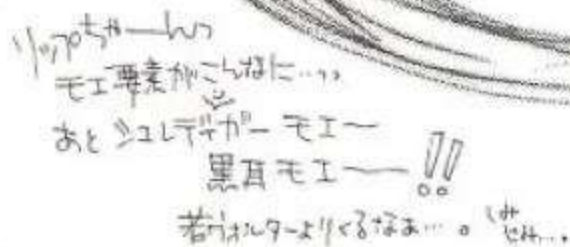 リップちゃーんっ
モエ要素がこんなに…、、
あと シュレディガー モエ〜
黒耳モエ〜〜!!
若ウォルターよりくるなぁ…。 しみじみ…。